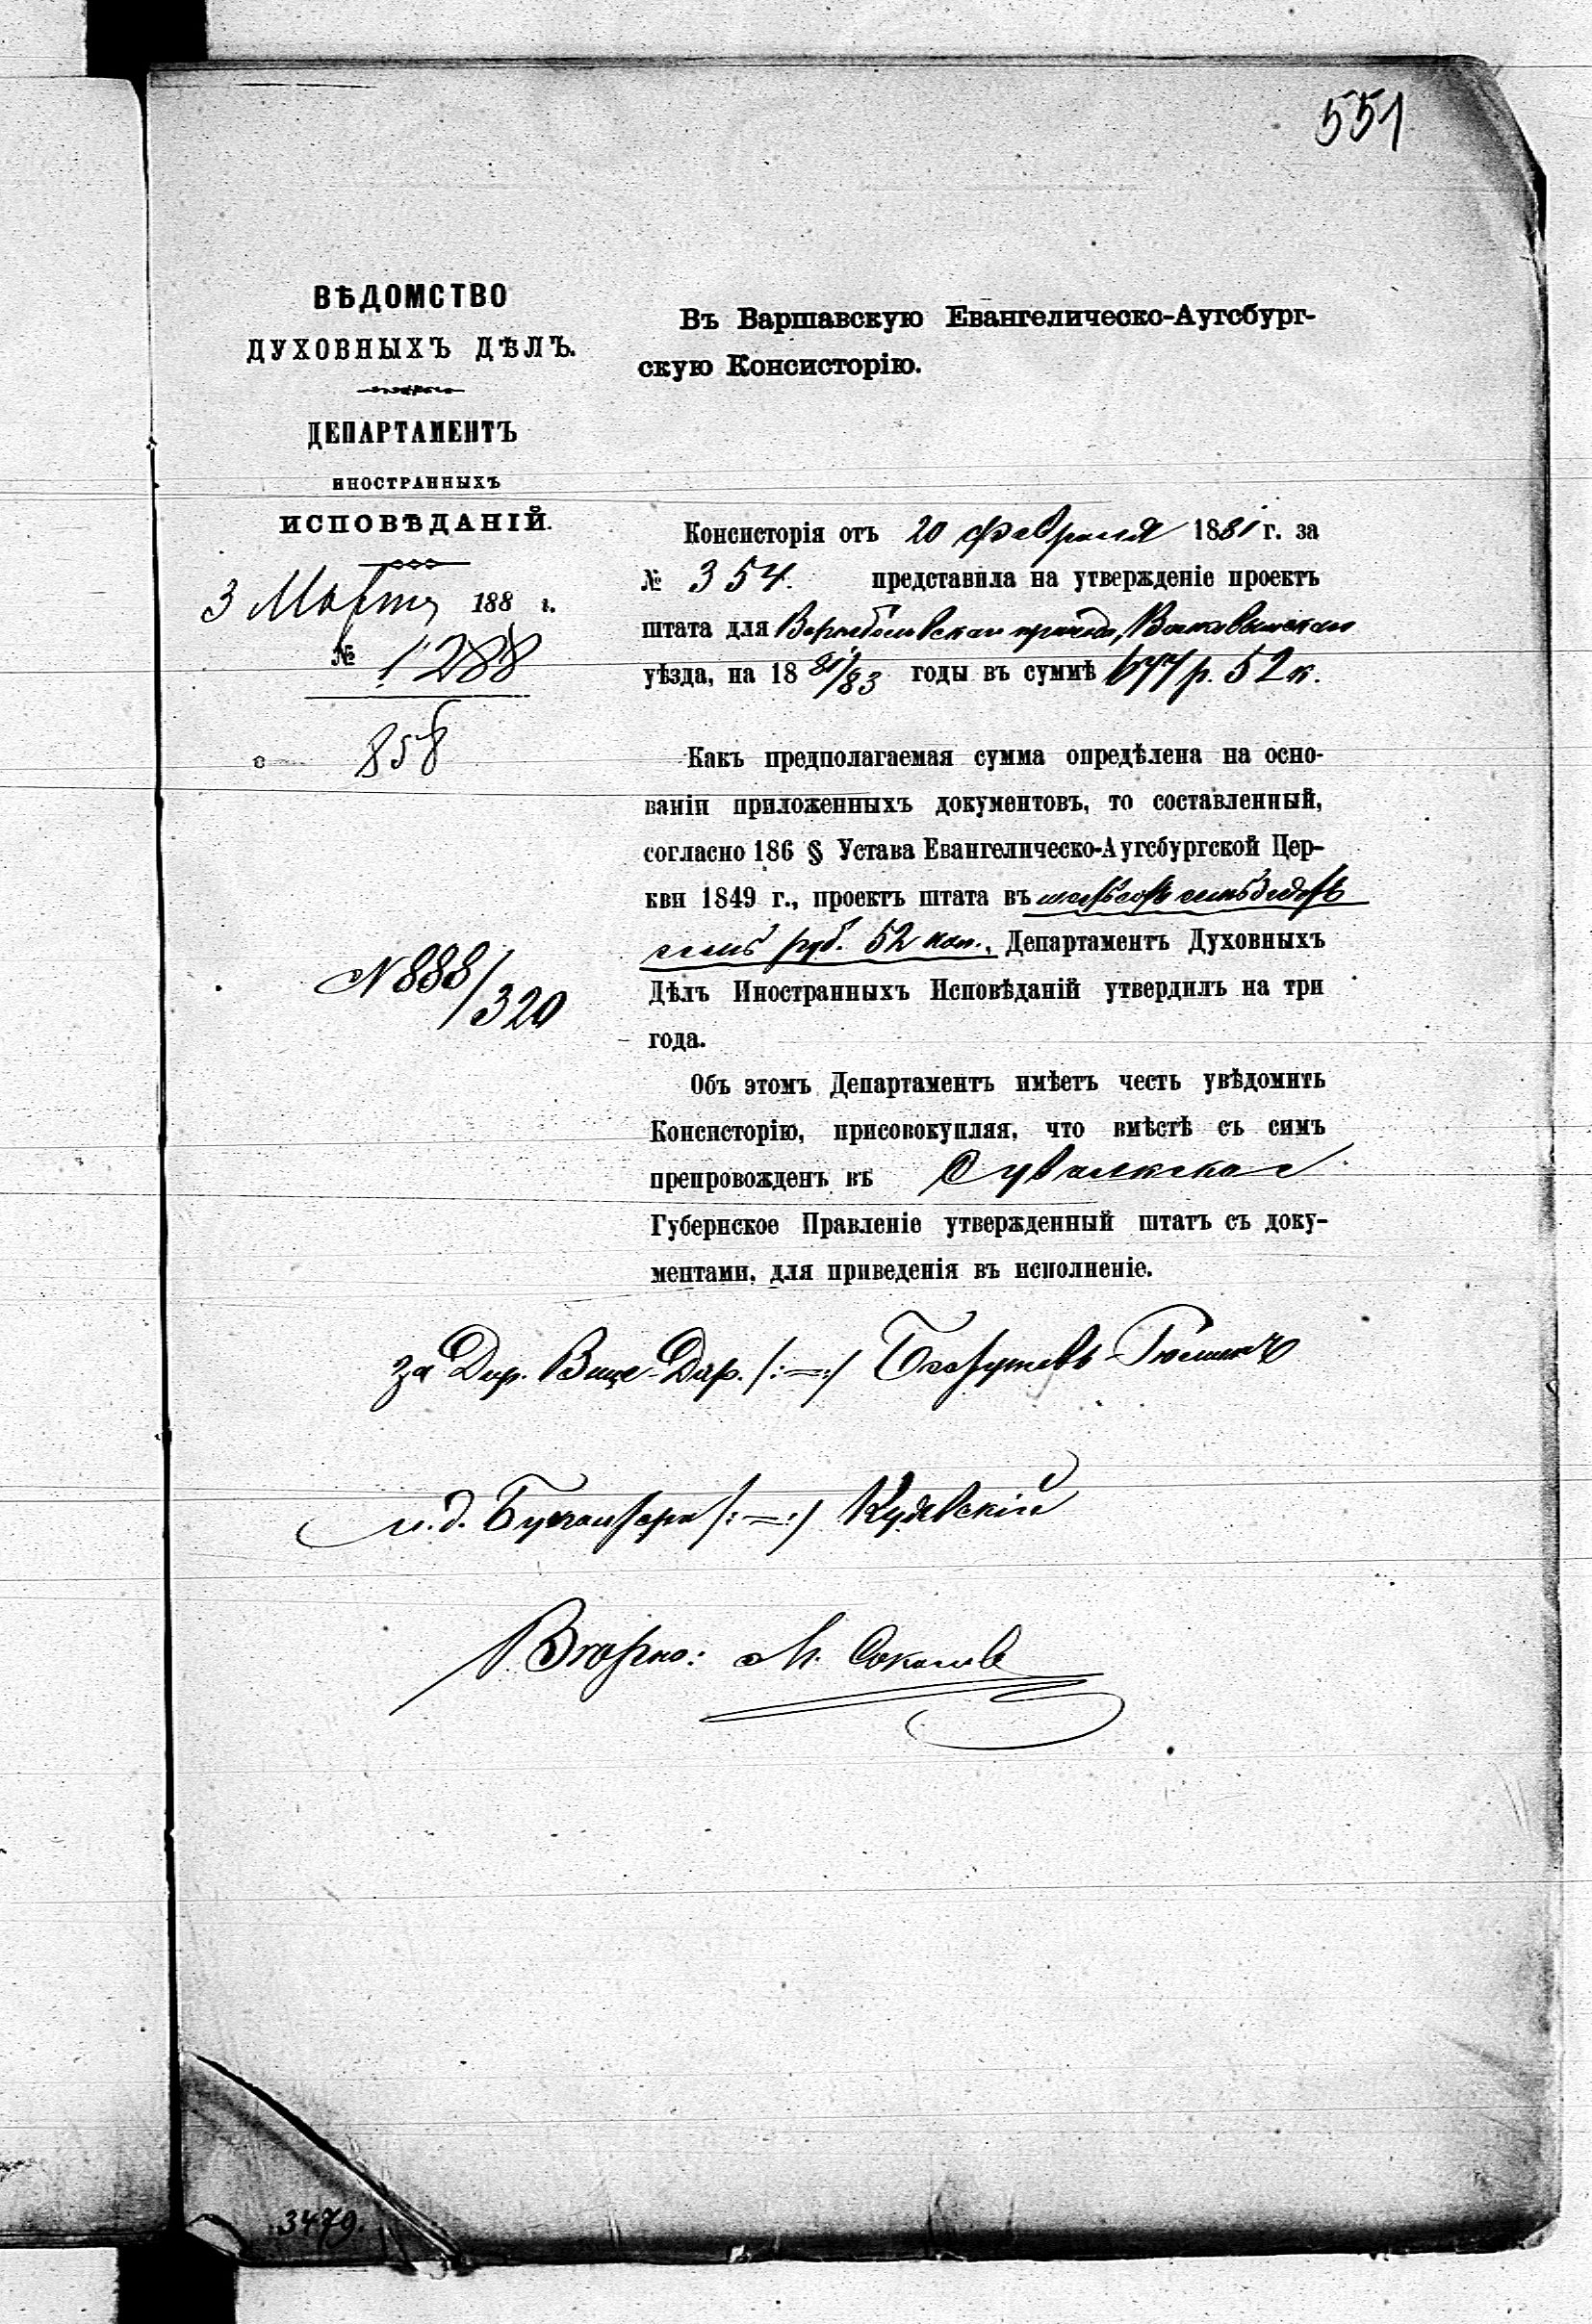 551
ВѢДОМСТВО
ДУХОВНЫХЪ ДѢЛЪ.
ДЕПАРТАМЕНТЪ
ИНОСТРАННЫХЪ
ИСПОВѢДАНІЙ.
3 Марта 188 г.
№ 1288
858
N 888/320
Въ Варшавскую Евангелическо-Аугсбург-
скую Консисторію.
Консисторія отъ 20 февраля 1881 г. за
№ 354. представила на утвержденіе проектъ
штата для прихода,
уѣзда, на 18 81/83 годы въ суммѣ 677 р. 52 к.
Какъ предполагаемая сумма опредѣлена на осно-
ваніи приложенныхъ документовъ, то составленный,
согласно 186 § Устава Евангелическо-Аугсбургской Цер-
кви 1849 г., проектъ штата въ шестьсотъ семьдесятъ
семь руб. 52 коп., Департаментъ Духовныхъ
Дѣлъ Иностранныхъ Исповѣданій утвердилъ на три
года.
Объ этомъ Департаментъ имѣетъ честь увѣдомить
Консисторію, присовокупляя, что вмѣстѣ съ симъ
препровожденъ въ Сувалкское
Губернское Правленіе утвержденный штатъ съ доку-
ментами, для приведенія въ исполненіе.
за Дир. Вице-Дир. /:—:/
и. д. Бухгалтера /:—:/ Кудевскій
Вѣрно: М. Соколовъ
3479.